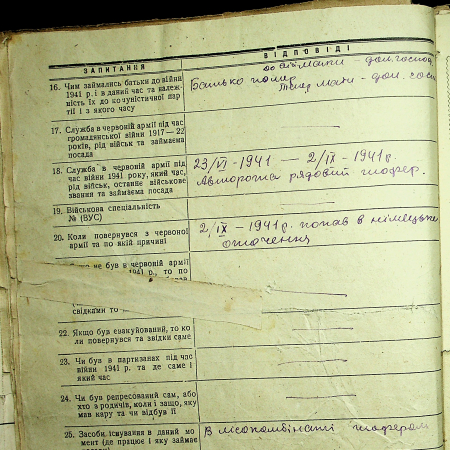 ЗАПИТАННЯ
ВІДПОВІДІ
16. Чим займались батьки до війни
1941 р. і в даний час та належ-
ність їх до комуністичної пар-
тії і з якого часу
до
мати - дом. господ
Батько помер
Тепер мати - дом. госп
17. Служба в червоній армії під час
громадянської війни 1917—22
років, рід військ та займаєма
посада
18. Служба в червоній армії під
час війни 1941 року, який час,
рід військ, останнє військове
звання та займаєма посада
23/VI - 1941 — 2/IX - 1941 р.
Авторота рядовий шофер.
19. Військова спеціальність
№ (ВУС)
20. Коли повернувся з червоної
армії та по якій причині
2/IX - 1941 р. попав в німецьке
оточення
не був в червоній армії
1941 р., то по
свідками то
22. Якщо був евакуйований, то ко
ли повернувся та звідки саме
23. Чи був в партизанах під час
війни 1941 р. та де саме і
який час
24. Чи був репресований сам, або
хто з родичів, коли і защо, яку
мав кару та чи відбув її
25. Засоби існування в даний мо
мент (де працює і яку займає
В лісокомбінаті шофером